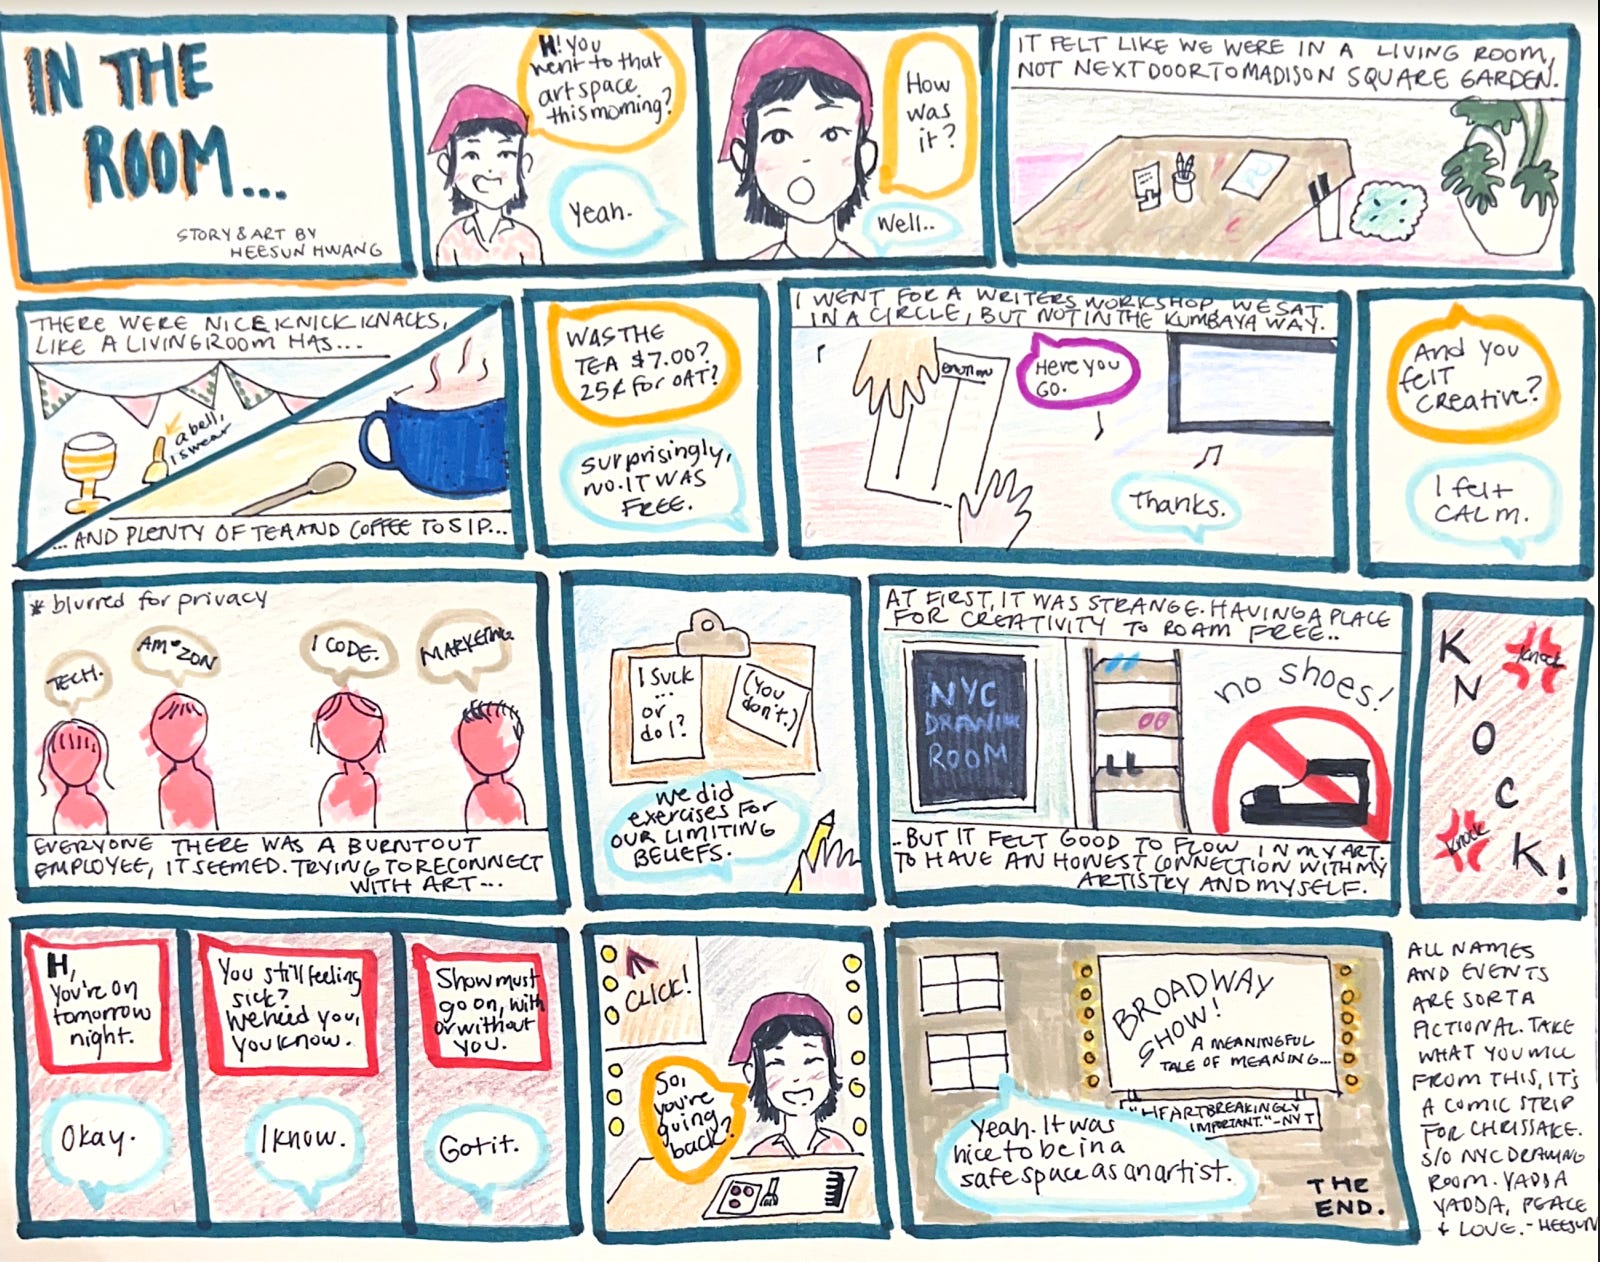 IN THE
ROOM...
STORY & ART BY
HEESUN HWANG
H! You
went to that
art space
this morning?
Yeah.
How
was
it?
Well..
IT FELT LIKE WE WERE IN A LIVING ROOM,
NOT NEXT DOOR TO MADISON SQUARE GARDEN.
THERE WERE NICE KNICK KNACKS,
LIKE A LIVING ROOM HAS...
a bell,
I swear
...AND PLENTY OF TEA AND COFFEE TO SIP...
WAS THE
TEA $7.00?
25¢ for OAT?
Surprisingly,
NO. IT WAS
FREE.
I WENT FOR A WRITERS WORKSHOP. WE SAT
IN A CIRCLE, BUT NOT IN THE KUMBAYA WAY.
Here you
Go.
Thanks.
And you
felt
creative?
I felt
CALM.
* blurred for privacy
TECH.
AM*ZON
I CODE.
MARKETING
EVERYONE THERE WAS A BURNTOUT
EMPLOYEE, IT SEEMED. TRYING TO RECONNECT
WITH ART...
I SUCK
...
or
do I?
(You
don't.)
we did
exercises FOR
OUR LIMITING
BELIEFS.
AT FIRST, IT WAS STRANGE. HAVING A PLACE
FOR CREATIVITY TO ROAM FREE..
NYC
DRAWING
ROOM
no shoes!
..BUT IT FELT GOOD TO FLOW IN MY ART.
TO HAVE AN HONEST CONNECTION WITH MY
ARTISTRY AND MYSELF.
KNOCK!
knock
knock
H,
you're on
tomorrow
night.
Okay.
You still feeling
sick?
We need you,
you know.
I know.
Show must
go on, with
or without
you.
Got it.
CLICK!
So,
you're
going
back?
BROADWAY
SHOW!
A MEANINGFUL
TALE OF MEANING...
"HEARTBREAKINGLY
IMPORTANT." -NYT
Yeah. It was
nice to be in a
safe space as an artist.
THE
END.
ALL NAMES
AND EVENTS
ARE SORTA
FICTIONAL. TAKE
WHAT YOU WILL
FROM THIS, IT'S
A COMIC STRIP
FOR CHRISSAKE.
S/O NYC DRAWING
ROOM. YADDA
YADDA, PEACE
+ LOVE. - HEESUN